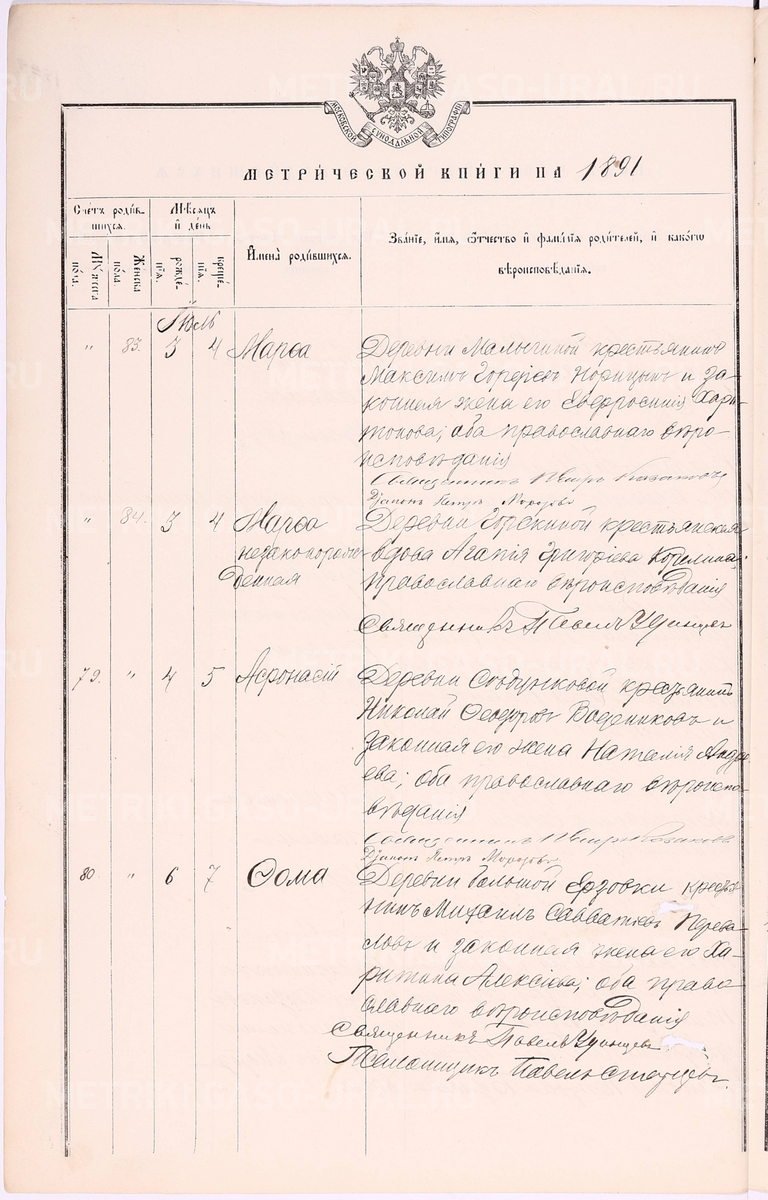 МОСКОВСКОЙ СѴНОДАЛЬНОЙ ТИПОГРАФІИ
МЕТРИ́ЧЕСКОЙ КНИ́ГИ НА 1891
Сче́тъ роди́в-
шихся.
Му́жеска
пола.
Же́нска
пола.
Мѣсяцъ
и день
рожде́-
нія.
креще́-
нія.
Имена̀ роди́вшихся.
Зва́ніе, и́мя, ѻ́тчество и фами́лія роди́телей, и како́гѡ
вѣроисповѣ́данія.
Іюль
" 83. 3 4 Марѳа
Деревни Малыгиной крестьянинъ
Максимъ Норицынъ и за-
конная жена его Евфросинія Хари-
тонова; оба православнаго вѣро-
исповѣданія
Священникъ Петръ Казаковъ
Діаконъ Петръ Морозовъ
" 84. 3 4 Марѳа
незаконорож-
денная
Деревни крестьянская
вдова Агапія Григорьева
православнаго вѣроисповѣданія
Священникъ Павелъ Удинцевъ
79. " 4 5 Афонасій
Деревни крестьянинъ
Николай Ѳеодоровъ Водениковъ и
законная его жена Наталія Андре-
ева; оба православнаго вѣроиспо-
вѣданія
Священникъ Петръ Казаковъ
Діаконъ Петръ Морозовъ
80. " 6 7 Ѳома
Деревни Большой Ерзовки крестья-
нинъ Михаилъ Савватіевъ Перева-
ловъ и законная жена его Ха-
ритина Алексіева; оба право-
славнаго вѣроисповѣданія
Священникъ Павелъ Удинцевъ
Псаломщикъ Павелъ
METRIKI.GASO-URAL.RU